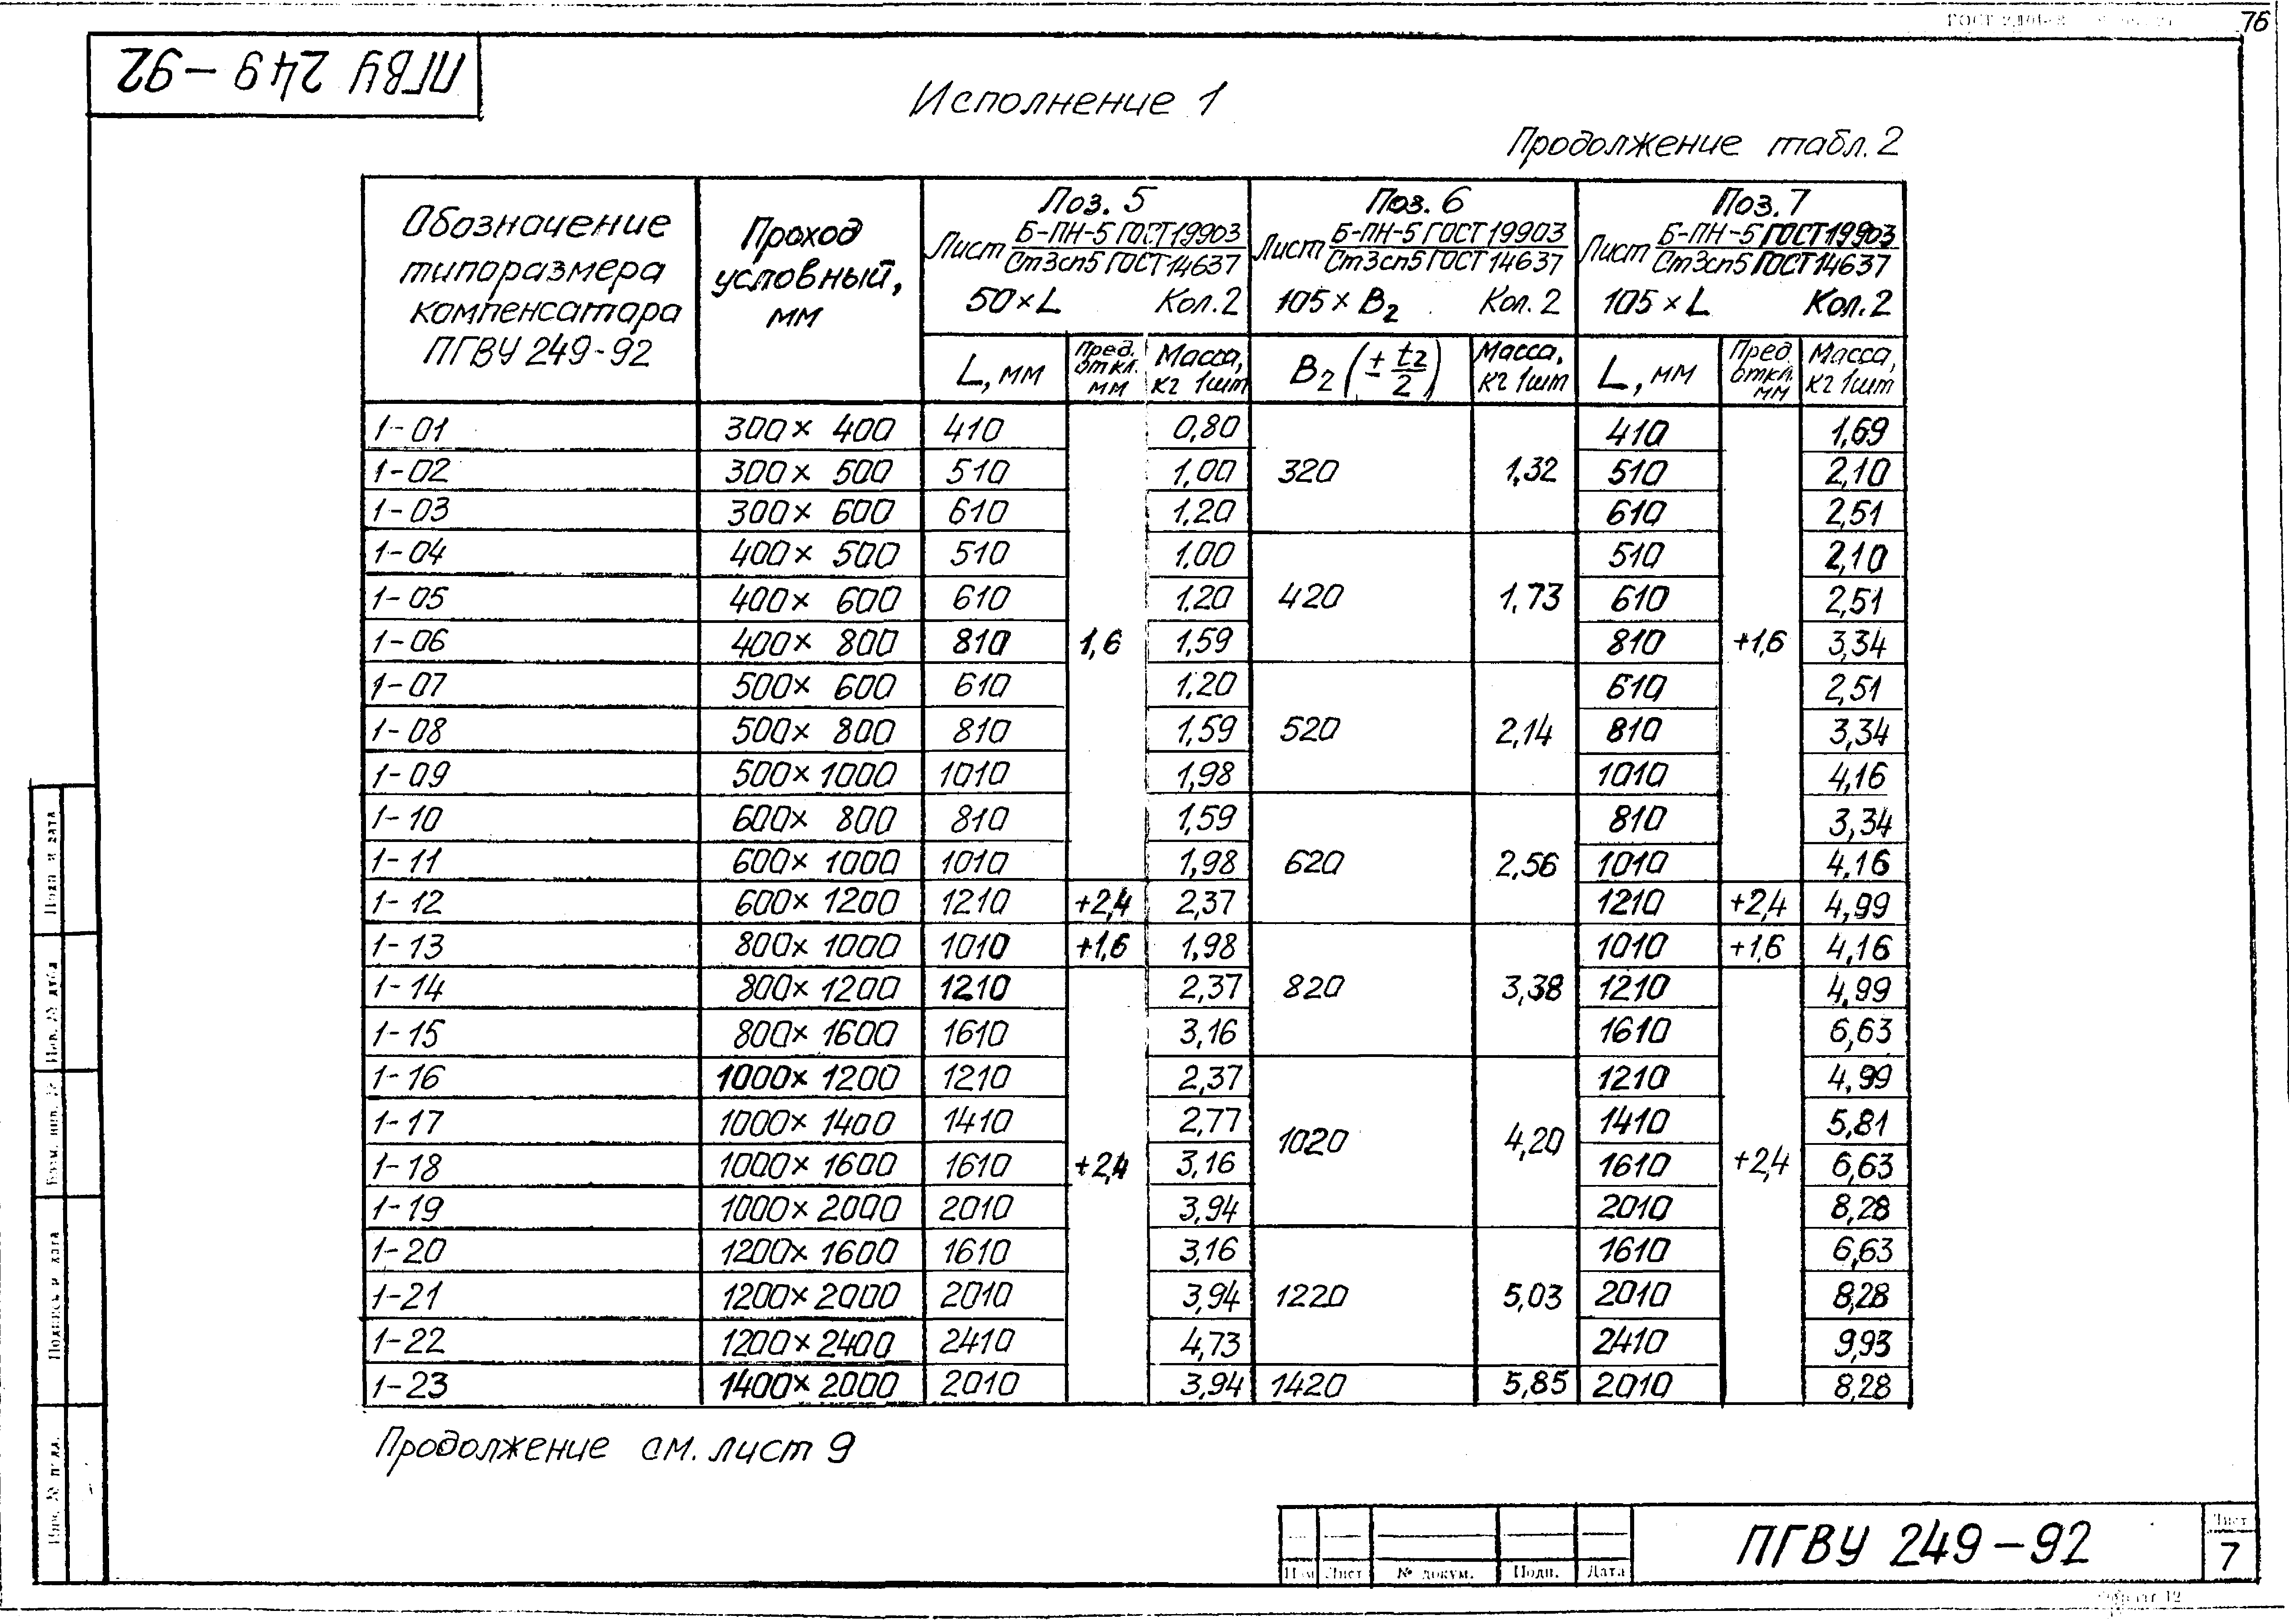 76
ПГВУ 249-92
Исполнение 1
Продолжение табл. 2
Обозначение типоразмера компенсатора ПГВУ 249-92
Проход условный, мм
Поз. 5
Лист Б-ПН-5 ГОСТ 19903 / Ст3сп5 ГОСТ 14637
50×L Кол. 2
Поз. 6
Лист Б-ПН-5 ГОСТ 19903 / Ст3сп5 ГОСТ 14637
105×B2 Кол. 2
Поз. 7
Лист Б-ПН-5 ГОСТ 19903 / Ст3сп5 ГОСТ 14637
105×L Кол. 2
L, мм | Пред. откл. мм | Масса, кг 1шт | B2 (± t2/2) | Масса, кг 1шт | L, мм | Пред. откл. мм | Масса, кг 1шт
1-01 300× 400 410 0,80 410 1,69
1-02 300× 500 510 1,00 320 1,32 510 2,10
1-03 300× 600 610 1,20 610 2,51
1-04 400× 500 510 1,00 510 2,10
1-05 400× 600 610 1,20 420 1,73 610 2,51
1-06 400× 800 810 1,6 1,59 810 +1,6 3,34
1-07 500× 600 610 1,20 610 2,51
1-08 500× 800 810 1,59 520 2,14 810 3,34
1-09 500×1000 1010 1,98 1010 4,16
1-10 600× 800 810 1,59 810 3,34
1-11 600×1000 1010 1,98 620 2,56 1010 4,16
1-12 600×1200 1210 +2,4 2,37 1210 +2,4 4,99
1-13 800×1000 1010 +1,6 1,98 1010 +1,6 4,16
1-14 800×1200 1210 2,37 820 3,38 1210 4,99
1-15 800×1600 1610 3,16 1610 6,63
1-16 1000×1200 1210 2,37 1210 4,99
1-17 1000×1400 1410 2,77 1020 4,20 1410 5,81
1-18 1000×1600 1610 +2,4 3,16 1610 +2,4 6,63
1-19 1000×2000 2010 3,94 2010 8,28
1-20 1200×1600 1610 3,16 1610 6,63
1-21 1200×2000 2010 3,94 1220 5,03 2010 8,28
1-22 1200×2400 2410 4,73 2410 9,93
1-23 1400×2000 2010 3,94 1420 5,85 2010 8,28
Продолжение см. лист 9
Изм Лист № докум. Подп. Дата
ПГВУ 249-92
Лист
7
Подп и дата
Инв. № дубл
Взам. инв. №
Подпись и дата
Инв. № подл.